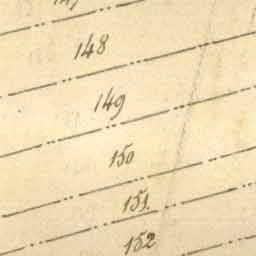 147
148
149
150
151.
152